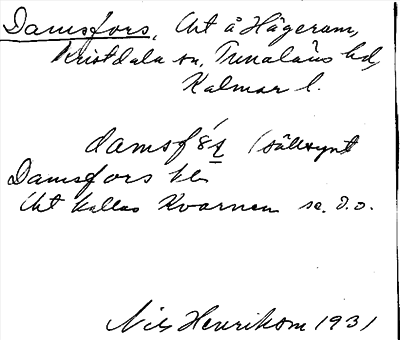 Damsfors, Cht å Hägeram,
Kristdala sn, Tunaläns hd,
Kalmar l.
damsfǒ́ş (sällsynt
Damsfors kl.
Cht kallas Kvarnen se. d.o.
Nils Henrikson 1931